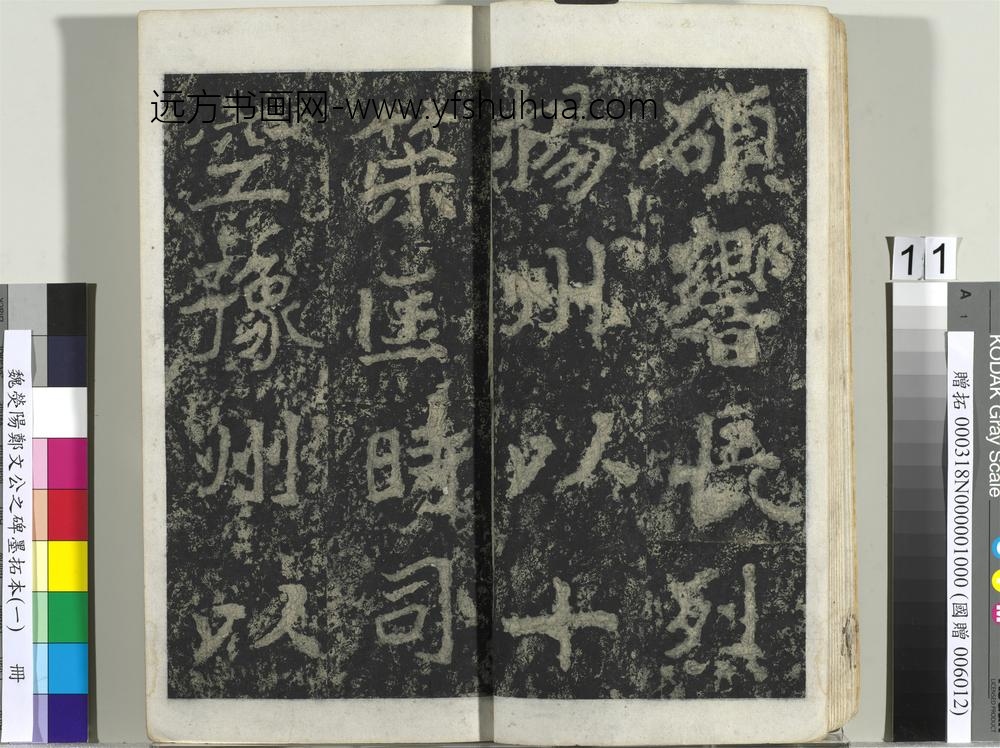 远方书画网-www.yfshuhua.com
碩響長烈
揚州以十
策匡時司
空豫州以
11
A 1
KODAK Gray Scale
贈拓 000318N000001000 (國贈 006012)
魏滎陽鄭文公之碑墨拓本(一) 冊